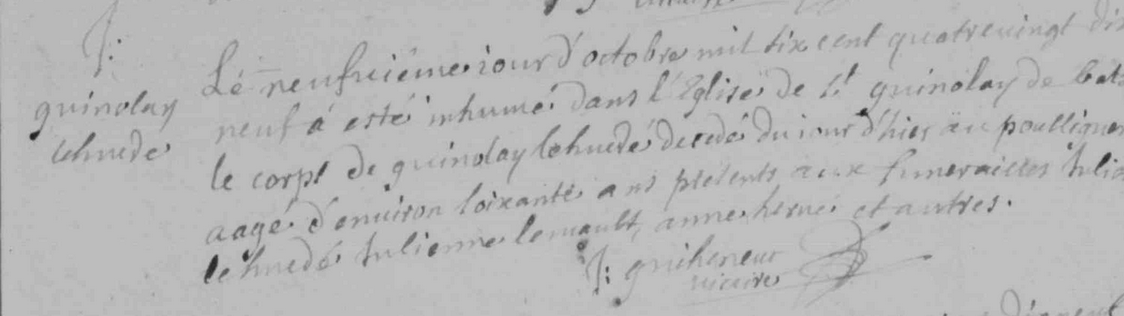 J:
guinolay
lehuede
Le neufuiéme iour d'octobre mil six cent quatre uingt dix
neuf á esté inhumé dans l'Eglise de St guinolay de batz
le corps de guinolay lehuedé decedé du iour d'hier au poulliguen
aagé d'enuiron soixante ans presents aux funerailles Julie
lehuedé Julienne lemault, anne herué et autres.
J: guiheneuf
uicaire